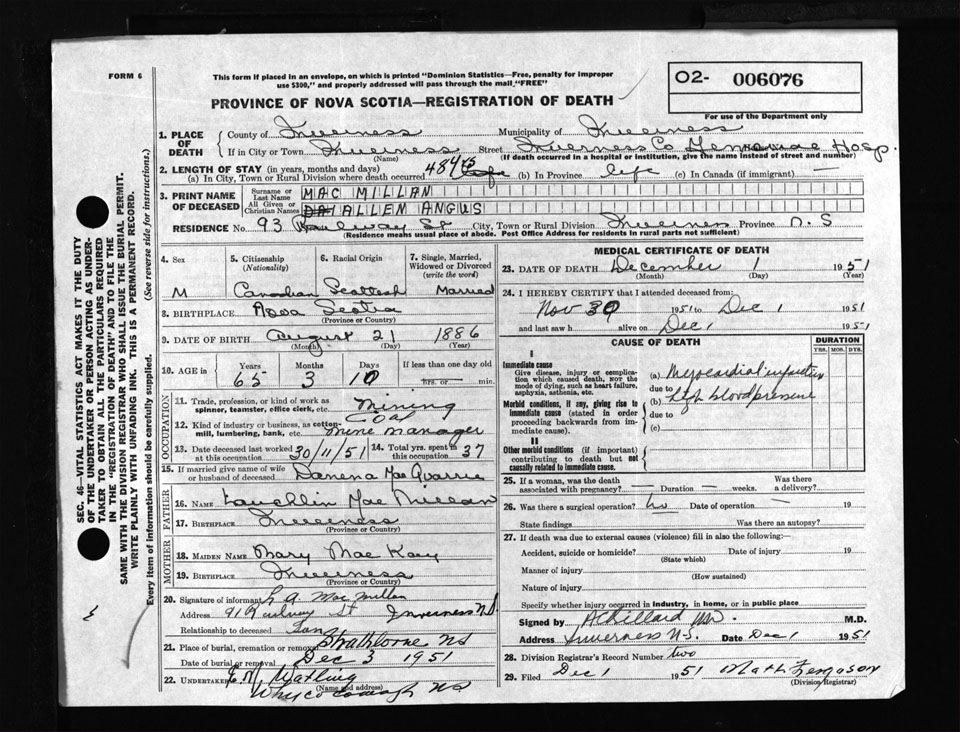 FORM 6
This form if placed in an envelope, on which is printed "Dominion Statistics—Free, penalty for improper
use $300," and properly addressed will pass through the mail "FREE"
PROVINCE OF NOVA SCOTIA—REGISTRATION OF DEATH
O2- 006076
For use of the Department only
SEC. 46—VITAL STATISTICS ACT MAKES IT THE DUTY
OF THE UNDERTAKER OR PERSON ACTING AS UNDER-
TAKER TO OBTAIN ALL THE PARTICULARS REQUIRED
IN THE "REGISTRATION OF DEATH" AND TO FILE THE
SAME WITH THE DIVISION REGISTRAR WHO SHALL ISSUE THE BURIAL PERMIT.
WRITE PLAINLY WITH UNFADING INK. THIS IS A PERMANENT RECORD.
Every item of information should be carefully supplied. (See reverse side for instructions.)
1. PLACE OF DEATH
County of Inverness Municipality of Inverness
If in City or Town Inverness Street Inverness Co Hosp.
(Name) (If death occurred in a hospital or institution, give the name instead of street and number)
2. LENGTH OF STAY (in years, months and days)
(a) In City, Town or Rural Division where death occurred life (b) In Province life (c) In Canada (if immigrant) —
3. PRINT NAME OF DECEASED
Surname or Last Name MAC MILLAN
All Given or Christian Names ALLEN ANGUS
RESIDENCE No. 93 Railway St City, Town or Rural Division Inverness Province N.S
(Residence means usual place of abode. Post Office Address for residents in rural parts not sufficient)
4. Sex 5. Citizenship (Nationality) 6. Racial Origin 7. Single, Married, Widowed or Divorced (write the word)
M Canadian Scottish Married
8. BIRTHPLACE Nova Scotia
(Province or Country)
9. DATE OF BIRTH August 21 1886
(Month) (Day) (Year)
10. AGE in Years Months Days If less than one day old
65 3 10 hrs. or — min.
OCCUPATION
11. Trade, profession, or kind of work as
spinner, teamster, office clerk, etc. Mining
12. Kind of industry or business, as cotton-
mill, lumbering, bank, etc. Coal mine manager
13. Date deceased last worked at this occupation 30/11/51 14. Total yrs. spent in this occupation 37
15. If married give name of wife
or husband of deceased MacQuarrie
FATHER
16. NAME Lauchlin MacMillan
17. BIRTHPLACE Inverness
(Province or Country)
MOTHER
18. MAIDEN NAME Mary MacKay
19. BIRTHPLACE Inverness
(Province or Country)
20. Signature of informant L A MacMillan
Address 91 Railway St Inverness N.S.
Relationship to deceased Son
21. Place of burial, cremation or removal Strathlorne NS
Date of burial or removal Dec 3 1951
22. UNDERTAKER E.M. Watling
(Name and address)
Whycocomagh NS
MEDICAL CERTIFICATE OF DEATH
23. DATE OF DEATH December 1 1951
(Month) (Day)
24. I HEREBY CERTIFY that I attended deceased from:
Nov 30 1951 to Dec 1 1951
and last saw h alive on Dec 1 1951
CAUSE OF DEATH DURATION
YRS. MOS. DYS.
I
Immediate cause
Give disease, injury or complica-
tion which caused death, NOT the
mode of dying, such as heart failure,
asphyxia, asthenia, etc.
(a) Myocardial infarction
due to
Morbid conditions, if any, giving rise to
immediate cause (stated in order
proceeding backwards from im-
mediate cause).
(b) high blood pressure
due to
(c)
II
Other morbid conditions (if important)
contributing to death but not
causally related to immediate cause.
25. If a woman, was the death
associated with pregnancy? — Duration — weeks. Was there a delivery?
26. Was there a surgical operation? No Date of operation — 19
State findings Was there an autopsy?
27. If death was due to external causes (violence) fill in also the following:
Accident, suicide or homicide? Date of injury 19
(State which)
Manner of injury
(How sustained)
Nature of injury
Specify whether injury occurred in industry, in home, or in public place
Signed by M.D.
Address Inverness N.S. Date Dec 1 1951
28. Division Registrar's Record Number two
29. Filed Dec 1 1951 Math Ferguson
(Division Registrar)